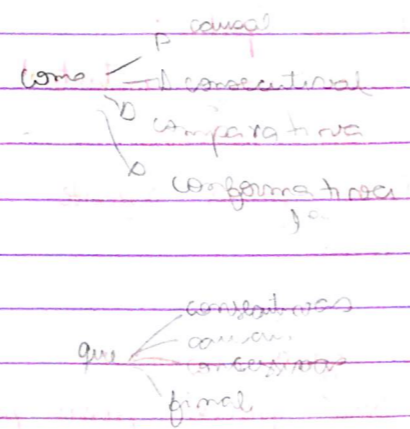 causal
como consecutival
comparativa
conformativa
consecutivas
que causal
concessivas
final